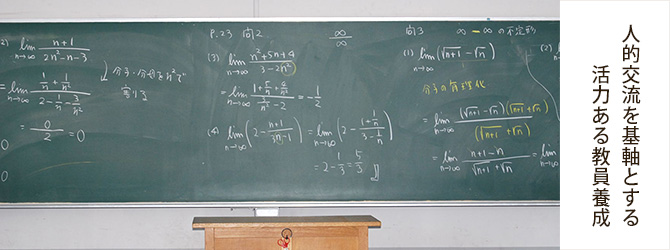 2) lim n→∞ n+1 / 2n²-n-3
分子・分母をn²で
割る
= lim n→∞ 1/n + 1/n² / 2 - 1/n - 3/n²
= 0/2 = 0
0
0
P.23 問2
∞/∞
(3) lim n→∞ n²+5n+4 / 3-2n²
= lim n→∞ 1+5/n+4/n² / 3/n² - 2 = -1/2
(4) lim n→∞ (2 - n+1 / 3n-1) = lim n→∞ (2 - 1+1/n / 3-1/n)
= 2 - 1/3 = 5/3
問3 ∞-∞の不定形
(1) lim n→∞ (√n+1 - √n)
分子の有理化
= lim n→∞ (√n+1 - √n)(√n+1 + √n) / (√n+1 + √n)
= lim n→∞ n+1-n / √n+1 + √n = lim n→∞
(2)
人的交流を基軸とする
活力ある教員養成